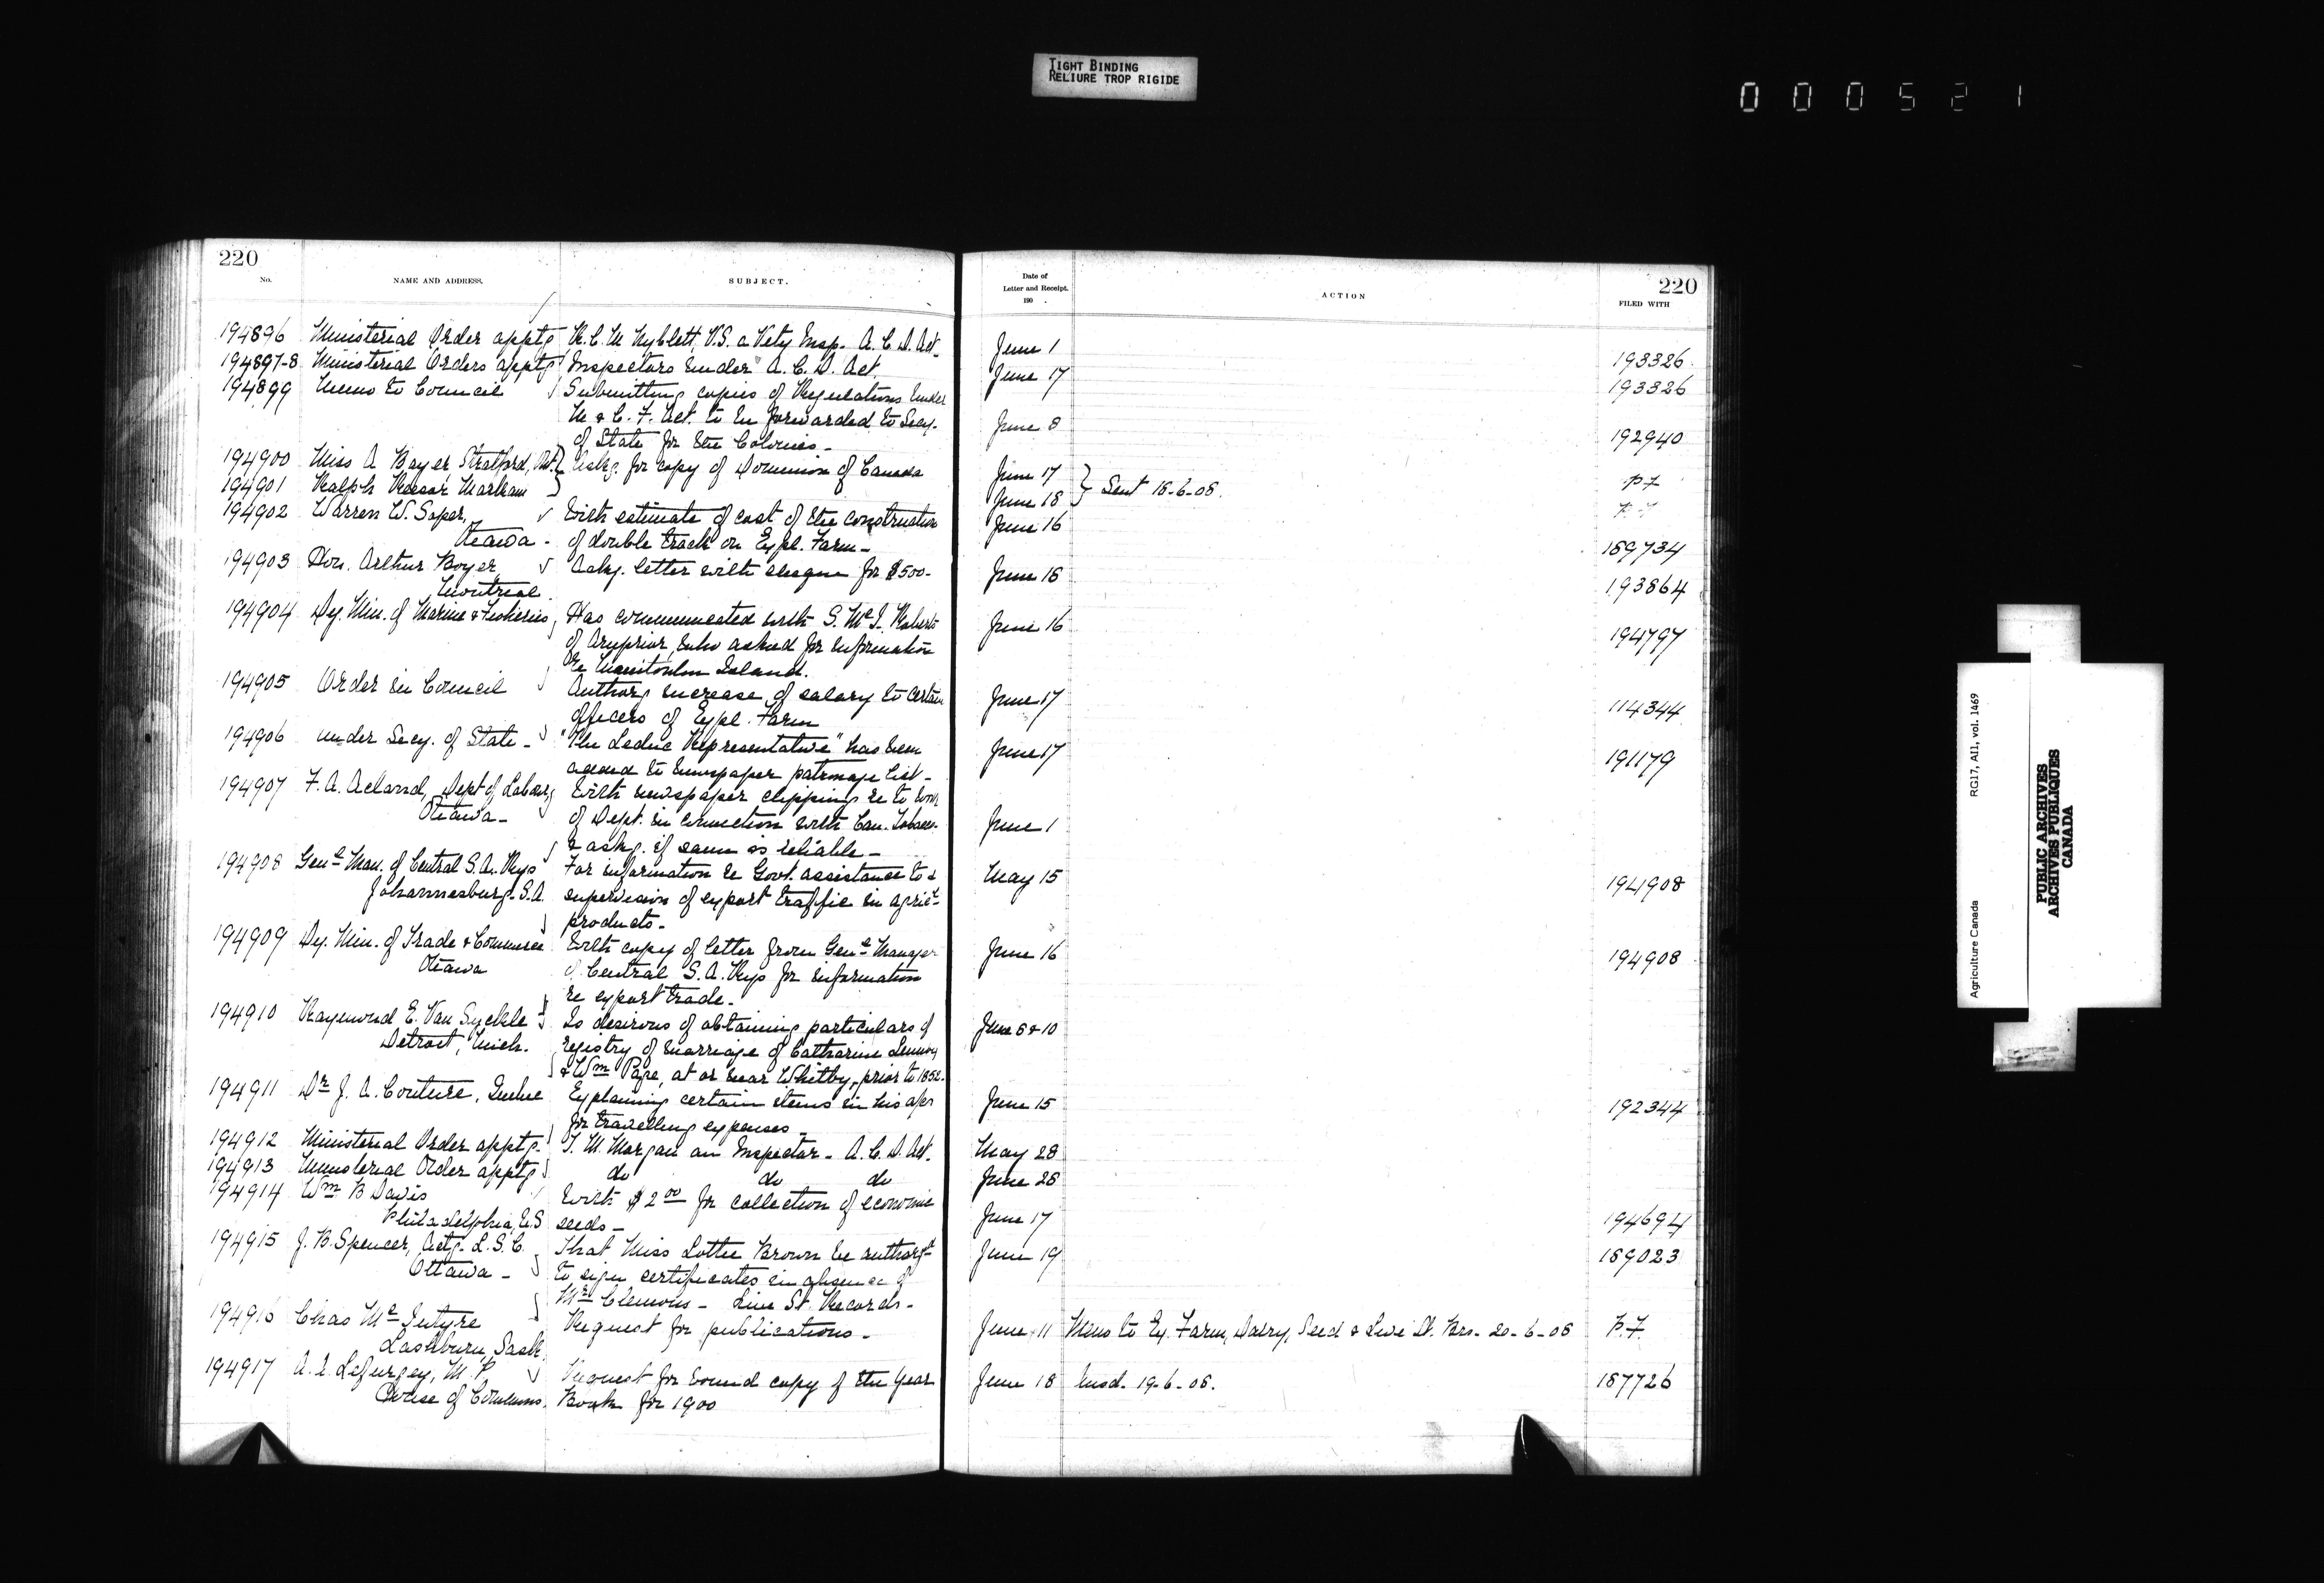 TIGHT BINDING
RELIURE TROP RIGIDE
000521
220
No.
NAME AND ADDRESS.
SUBJECT.
194896 Ministerial Order apptg R.C.M Nyblett, V.S. a Vety Insp. A.C.D. Act.
194897-8 Ministerial Orders apptg Inspectors under A.C.D. Act.
194899 Memo to Council Submitting copies of Regulations under
M & C. F. Act. to be forwarded to Secy.
of State for the Colonies.
194900 Miss A Bayer Stratford, Ont. Askg. for copy of Dominion of Canada
194901 Ralph Reesor Markham
194902 Warren W. Soper, With estimate of cost of the construction
Ottawa - of double track on Expl. Farm -
194903 Hon. Arthur Boyer, Ackg. letter with cheque for $500-
Montreal.
194904 Dy. Min. of Marine & Fisheries, Has communicated with S. McI. Roberts
of Arnprior, who asked for information
re Manitoulin Island.
194905 Order in Council Authorg increase of salary to certain
officers of Expl. Farm
194906 Under Secy. of State - "The Leduc Representative" has been
added to newspaper patronage list -
194907 F. A. Acland, Dept of Labour, With newspaper clipping re to work
Ottawa - of Dept. in connection with Can. Tobacco
& askg. if same is reliable -
194908 Genl Man. of Central S.A. Rys For information re Govt. assistance to &
Johannesburg. S.A. supervision of export traffic in agricl
products -
194909 Dy. Min. of Trade & Commerce With copy of letter from Genl Manager
Ottawa of Central S.A. Rys for information
re export trade -
194910 Raymond E. Van Syckle Is desirous of obtaining particulars of
Detroit, Mich. registry of marriage of Catharine
& Wm Pape, at or near Whitby, prior to 1852.
194911 Dr J. A. Couture, Quebec Explaining certain items in his a/c
for travelling expenses -
194912 Ministerial Order apptg. T. M. Morgan an Inspector - A. C. D. Act.
194913 Ministerial Order apptg do do do
194914 Wm B Davis With $2 00 for collection of economic
Philadelphia, U.S seeds -
194915 J. B. Spencer, Actg. L. S. C. That Miss Lottie Brown be authorgd
Ottawa - to sign certificates in absence of
Mr Clemons - Live St. Records -
194916 Chas McIntyre Request for publications -
Lashburn, Sask.
194917 A. A. Lefurgey, M.P. Request for bound copy of the Year
House of Commons. Book for 1900
Date of
Letter and Receipt.
190 .
ACTION
220
FILED WITH
June 1 193326
June 17 193326
June 8 192940
June 17 Sent 18-6-08. P.F.
June 18
June 16 189734
June 18 193864
June 16 194797
June 17 114344
June 17 191179
June 1
May 15 194908
June 16 194908
June 6 & 10
June 15 192344
May 28
June 28
June 17 194694
June 19 189023
June 11 Memo to Ex. Farm, Dairy, Seed & Live St. Brs - 20-6-08 P.F.
June 18 19-6-08. 187726
Agriculture Canada RG17, AII, vol. 1469
PUBLIC ARCHIVES
ARCHIVES PUBLIQUES
CANADA